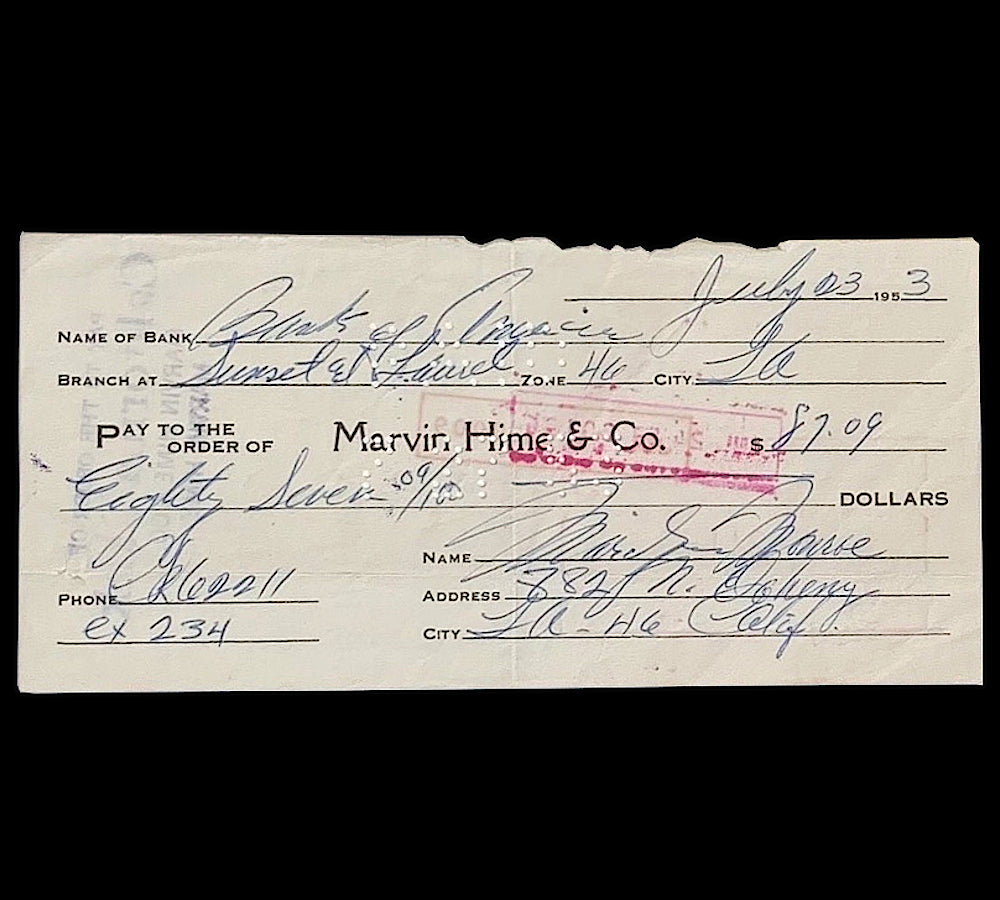 July 23 1953
NAME OF BANK Bank of America
BRANCH AT Sunset & Laurel ZONE 46 CITY LA
PAY TO THE ORDER OF Marvin Hime & Co. $ 87.09
Eighty Seven 09/100 DOLLARS
NAME Marilyn Monroe
PHONE CR62211 ADDRESS 882 N. Doheny
ex 234 CITY LA - 46 Calif.